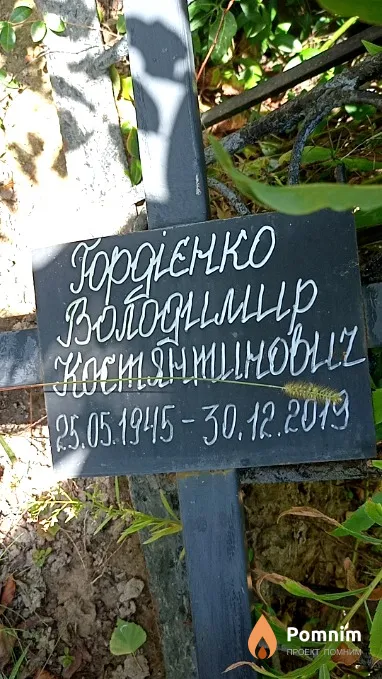 Гордієнко
Володимир
Костянтинович
25.05.1945 - 30.12.2019
Pomnim
ПРОЕКТ ПОМНИМ